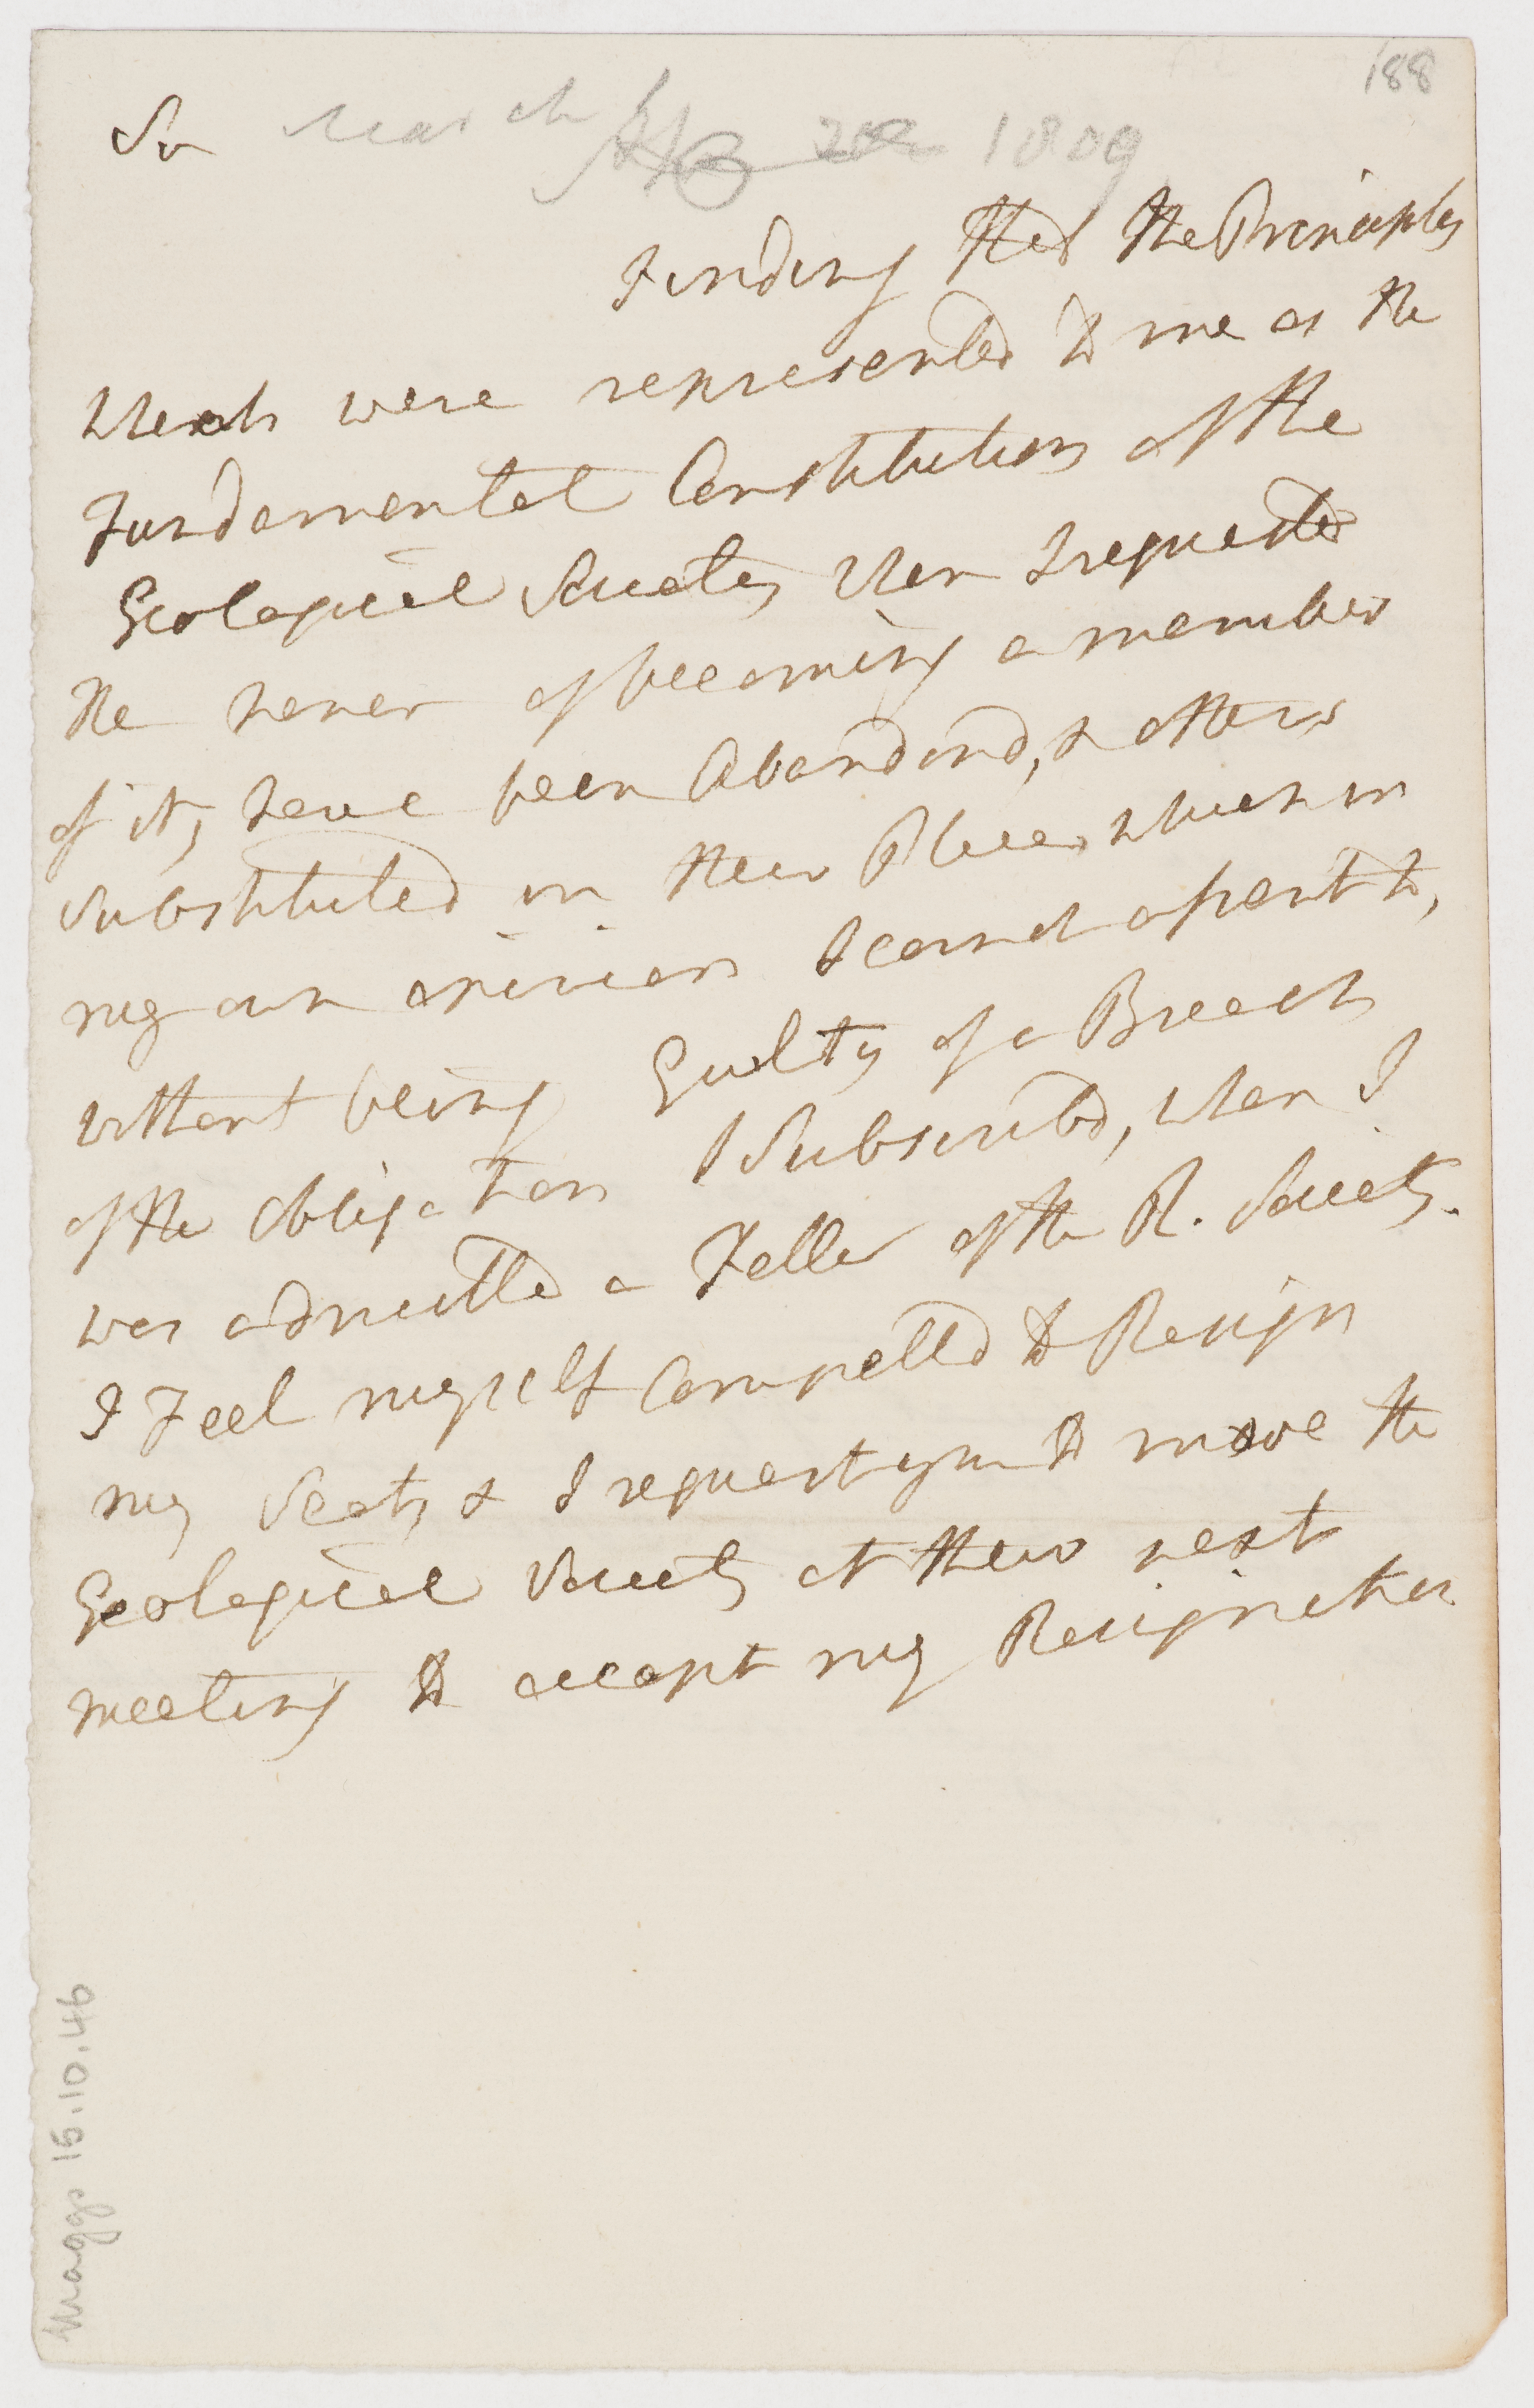 188
Sir March 1809
Finding that the Principles
Which were represented to me as the
Fundamental Constitution of the
Geological Society when I requested
the honor of becoming a member
of it, have been Abandond, & others
Substituted in their Places which in
my own opinion I cannot assent to,
without being Guilty of a Breach
of the obligation I Subscribd, when I
was admitted a Fellow of the R. Society.
I Feel myself Compelld to Resign
my Seat, & I request you to move the
Geological Society at their next
meeting to accept my Resignation
Maggs 15.10.46